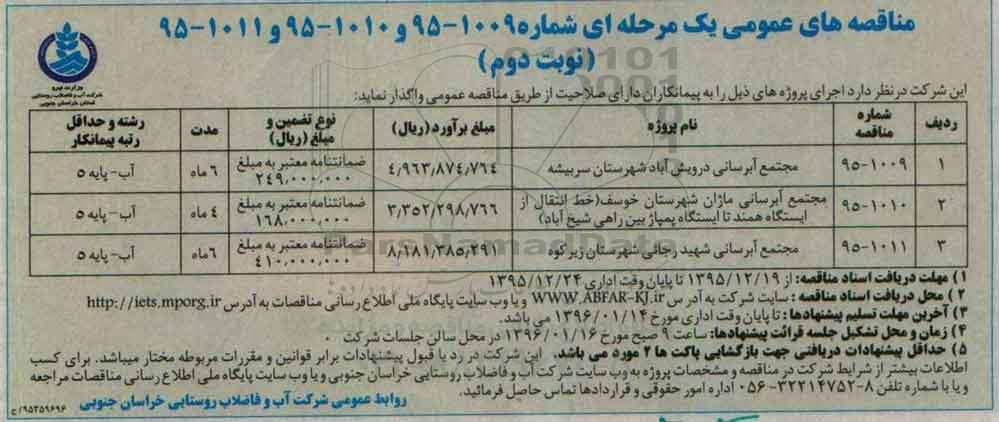 مناقصه های عمومی یک مرحله ای شماره ۱۰۰۹-۹۵ و ۱۰۱۰-۹۵ و ۱۰۱۱-۹۵
(نوبت دوم)
وزارت نیرو
شرکت آب و فاضلاب روستایی
استان خراسان جنوبی
این شرکت در نظر دارد اجرای پروژه های ذیل را به پیمانکاران دارای صلاحیت از طریق مناقصه عمومی واگذار نماید:
ردیف	شماره مناقصه	نام پروژه	مبلغ برآورد (ریال)	نوع تضمین و مبلغ (ریال)	مدت	رشته و حداقل رتبه پیمانکار
۱	۹۵-۱۰۰۹	مجتمع آبرسانی درویش آباد شهرستان سربیشه	۴٫۹۶۳٫۸۷۴٫۷۶۴	ضمانتنامه معتبر به مبلغ ۲۴۹٫۰۰۰٫۰۰۰	۶ ماه	آب - پایه ۵
۲	۹۵-۱۰۱۰	مجتمع آبرسانی ماژان شهرستان خوسف(خط انتقال از ایستگاه همند تا ایستگاه پمپاژ بین راهی شیخ آباد)	۳٫۳۵۲٫۲۹۸٫۷۶۶	ضمانتنامه معتبر به مبلغ ۱۶۸٫۰۰۰٫۰۰۰	۴ ماه	آب - پایه ۵
۳	۹۵-۱۰۱۱	مجتمع آبرسانی شهید رجائی شهرستان زیرکوه	۸٫۱۸۱٫۳۸۵٫۲۹۱	ضمانتنامه معتبر به مبلغ ۴۱۰٫۰۰۰٫۰۰۰	۶ ماه	آب - پایه ۵
۱) مهلت دریافت اسناد مناقصه: از ۱۳۹۵/۱۲/۱۹ تا پایان وقت اداری ۱۳۹۵/۱۲/۲۴
۲) محل دریافت اسناد مناقصه: سایت شرکت به آدرس WWW.ABFAR-KJ.ir و یا وب سایت پایگاه ملی اطلاع رسانی مناقصات به آدرس http://iets.mporg.ir
۳) آخرین مهلت تسلیم پیشنهادها: تا پایان وقت اداری مورخ ۱۳۹۶/۰۱/۱۴ می باشد.
۴) زمان و محل تشکیل جلسه قرائت پیشنهادها: ساعت ۹ صبح مورخ ۱۳۹۶/۰۱/۱۶ در محل سالن جلسات شرکت
۵) حداقل پیشنهادات دریافتی جهت بازگشایی پاکت ها ۲ مورد می باشد. این شرکت در رد یا قبول پیشنهادات برابر قوانین و مقررات مربوطه مختار میباشد. برای کسب
اطلاعات بیشتر از شرایط شرکت در مناقصه و مشخصات پروژه به وب سایت شرکت آب و فاضلاب روستایی خراسان جنوبی و یا وب سایت پایگاه ملی اطلاع رسانی مناقصات مراجعه
و یا با شماره تلفن ۸-۳۲۲۱۴۷۵۲-۰۵۶ اداره امور حقوقی و قراردادها تماس حاصل فرمائید.
روابط عمومی شرکت آب و فاضلاب روستایی خراسان جنوبی
۹۵۳۵۹۶۹۶/خ
ParsNamadData